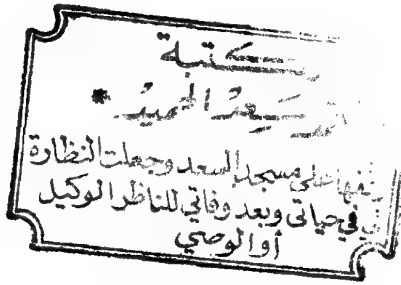 مكتبة
سعد الحميد *
على مسجد السعد وجعلت النظارة
في حياتي وبعد وفاتي للناظر الوكيل
أو الوصي